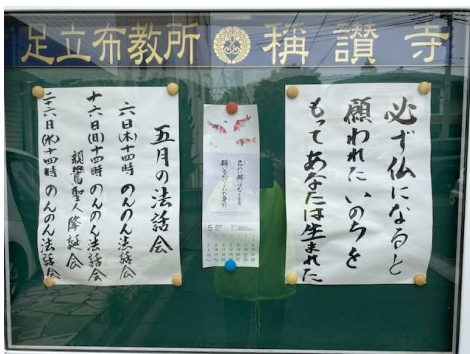 足立布教所 稱讃寺
必ず仏になると
願われたいのちを
もってあなたは生まれた
五月の法話会
六日(木)十四時 のんのん法話会
十六日(日)十四時 のんのん法話会
親鸞聖人降誕会
二六日(水)十四時 のんのん法話会
5